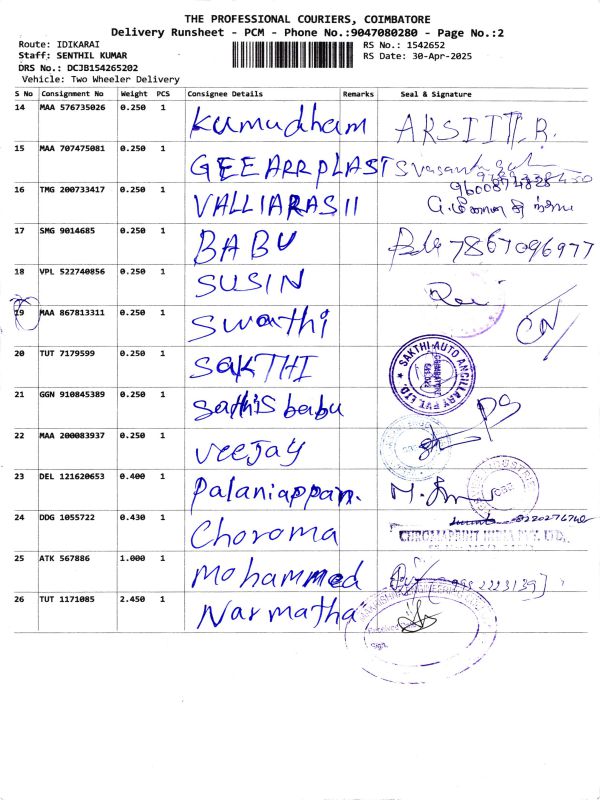 THE PROFESSIONAL COURIERS, COIMBATORE
Delivery Runsheet - PCM - Phone No.:9047080280 - Page No.:2
Route: IDIKARAI RS No.: 1542652
Staff: SENTHIL KUMAR RS Date: 30-Apr-2025
DRS No.: DCJB154265202
Vehicle: Two Wheeler Delivery
S No Consignment No Weight PCS Consignee Details Remarks Seal & Signature
14 MAA 576735026 0.250 1 Kumudham
15 MAA 707475081 0.250 1 GEE ARR PLAST
16 TMG 200733417 0.250 1 VALLIARASII 9600874828
17 SMG 9014685 0.250 1 BABU 7867096977
18 VPL 522740856 0.250 1 SUSIN
19 MAA 867813311 0.250 1 Swathi CN
20 TUT 7179599 0.250 1 SAKTHI SAKTHI AUTO ANCILLARY PVT. LTD.
21 GGN 910845389 0.250 1 Sathis babu
22 MAA 200083937 0.250 1 Veejay
23 DEL 121620653 0.400 1 Palaniappan.
24 DDG 1055722 0.430 1 Choroma CHROMAPRINT INDIA PVT. LTD.,
25 ATK 567886 1.000 1 Mohammed
26 TUT 1171085 2.450 1 Narmatha